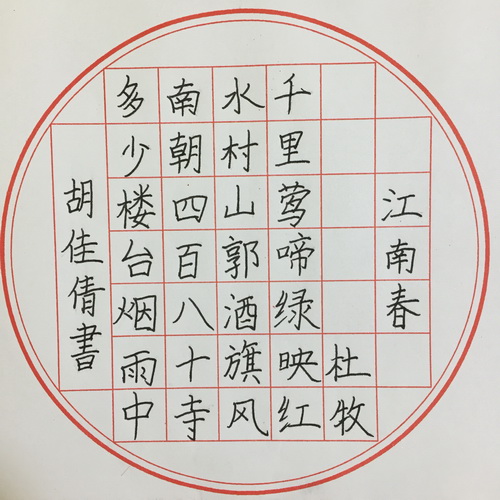 江南春
杜牧
千里莺啼绿映红
水村山郭酒旗风
南朝四百八十寺
多少楼台烟雨中
胡佳倩書